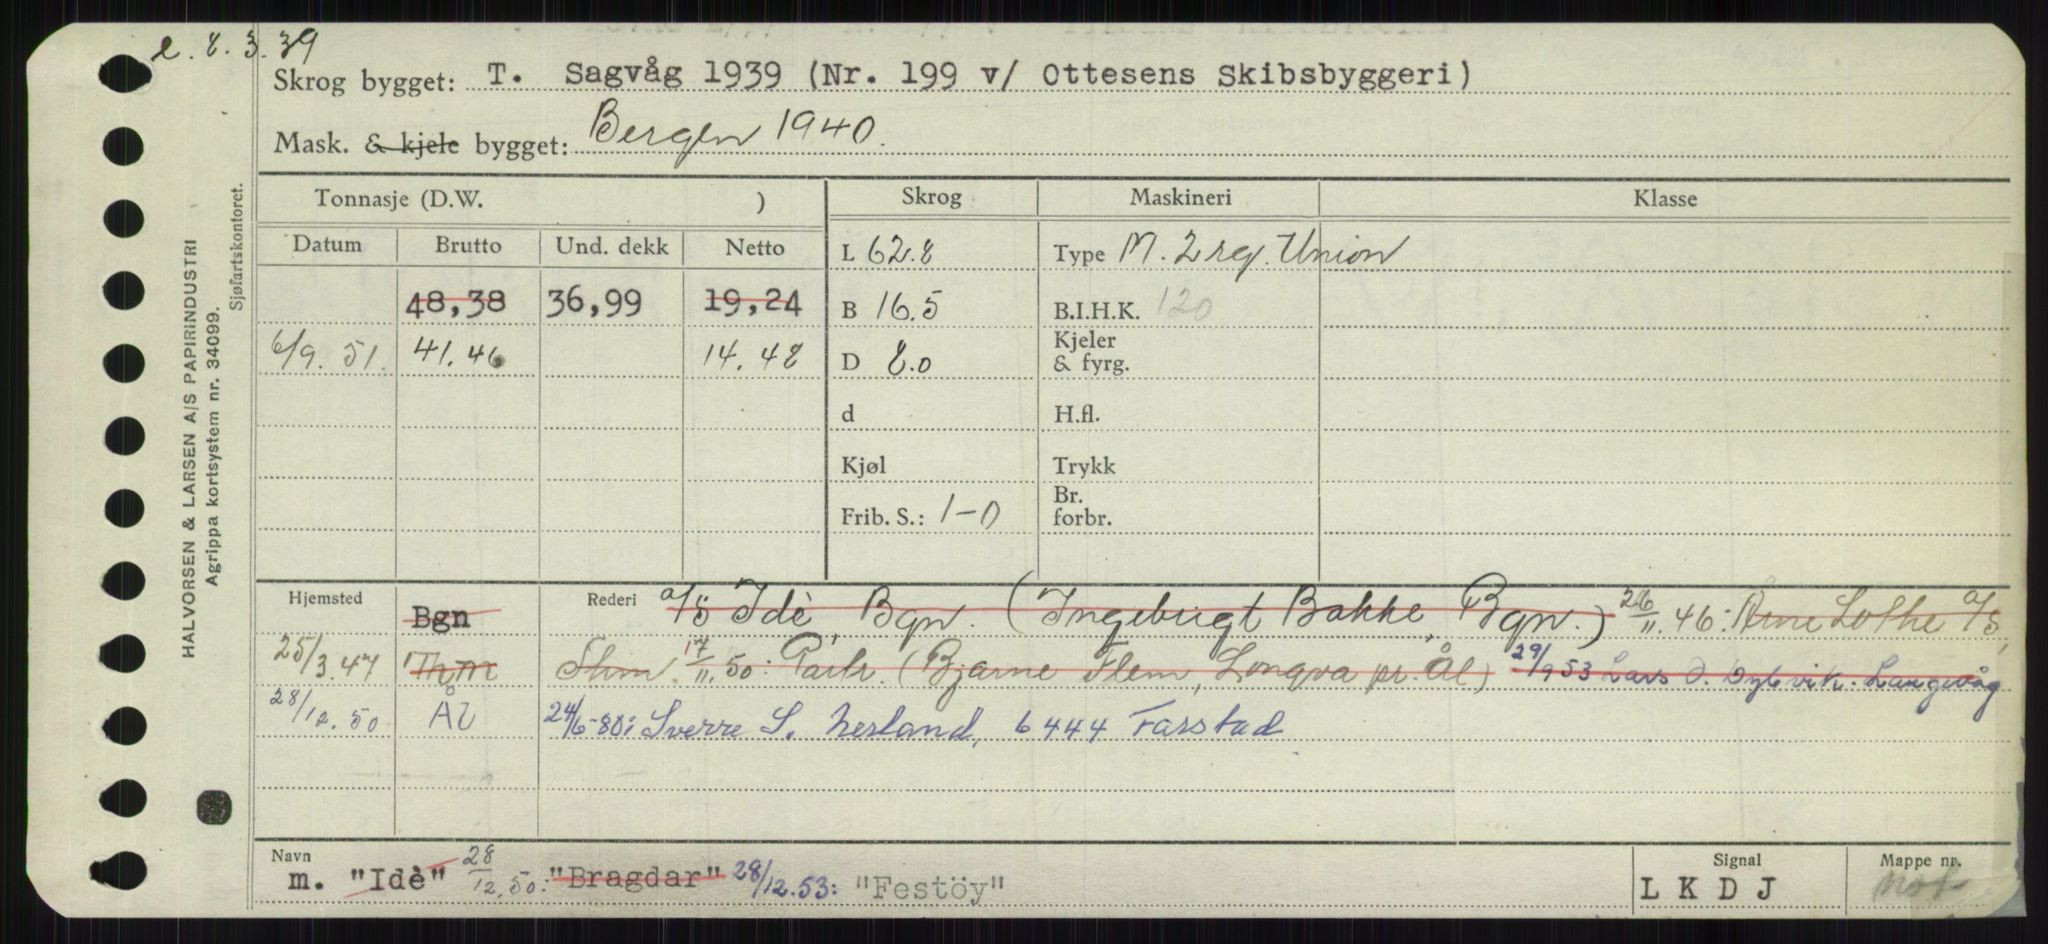 e. 8. 3. 39
Skrog bygget: T. Sagvåg 1939 (Nr. 199 v/ Ottesens Skibsbyggeri)
Mask. & kjele bygget: Bergen 1940.
HALVORSEN & LARSEN A/S PAPIRINDUSTRI
Agrippa kortsystem nr. 34099.
Sjøfartskontoret.
Tonnasje (D.W. ) Skrog Maskineri Klasse
Datum Brutto Und. dekk Netto L 62.8 Type M. 2 sg. Union
48,38 36,99 19,24 B 16.5 B.I.H.K. 120
6/9. 51. 41.46 14.48 D 8.0 Kjeler & fyrg.
d H.fl.
Kjøl Trykk
Frib. S.: 1-0 Br. forbr.
Hjemsted Bgn Rederi a/s Idè, Bgn. (Ingebrigt Bakke, Bgn.) 26/11. 46: Arne Lothe a/s,
25/3. 47 Thm 17/11. 50: Partr. (Bjarne Flem, Longva pr. Ål) 29/9 53 Lars O. Dybvik. Langevåg
28/12. 50 Ål 24/6-80: Sverre S. Nesland, 6444 Farstad
Navn m. "Idè" 28/12. 50: "Bragdar" 28/12. 53: "Festöy" Signal LKDJ Mappe nr.